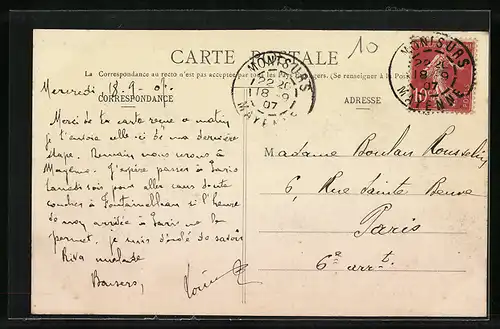 10
CARTE POSTALE
MONTSURS
22 20
18 -9
07
MAYENNE
MONTSURS
18 9
07
MAYENNE
10
La Correspondance au recto n'est pas acceptée par tous les Pays étrangers. (Se renseigner à la Poste
CORRESPONDANCE
ADRESSE
Mercredi 18.9.07
Merci de ta carte reçue ce matin
je t'envoie celle-ci de ma dernière
étape. Demain nous serons à
Mayenne. J'espère passer à Paris
Samedi soir pour aller sans doute
coucher à Fontainebleau si l'heure
de mon arrivée à Paris me le
permet, je suis désolé de savoir
Riva malade
Baisers,
Madame Boulan Rousselin
6, Rue Sainte Beuve
Paris
6e arrt.